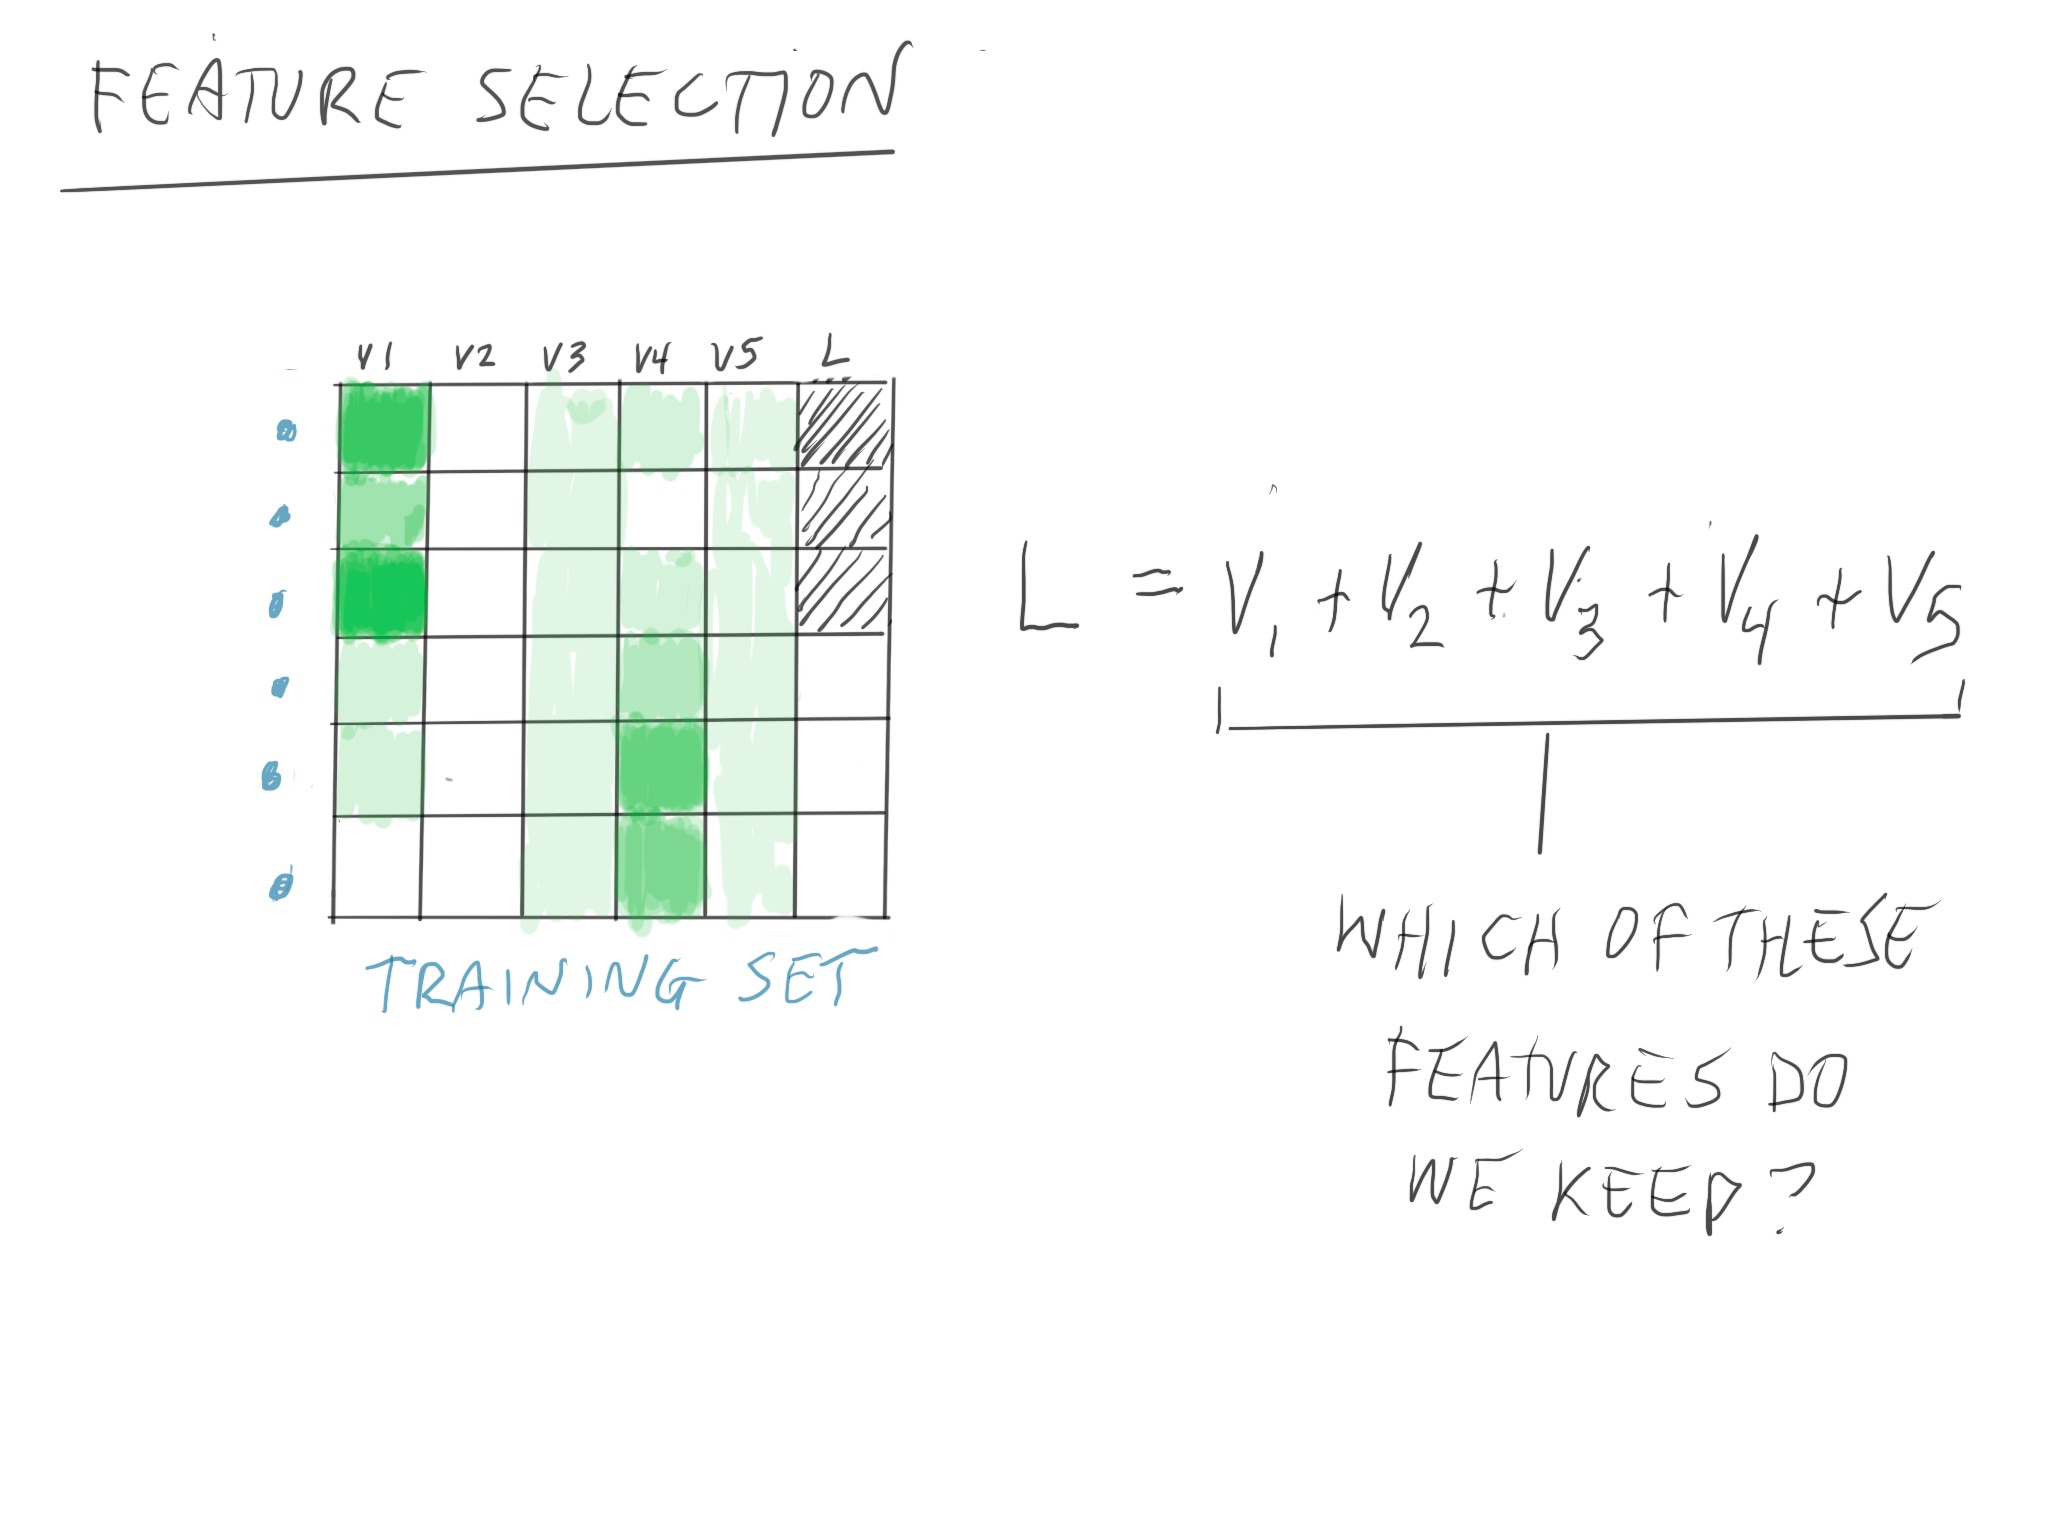 FEATURE SELECTION
V1 V2 V3 V4 V5 L
TRAINING SET
L = V1 + V2 + V3 + V4 + V5
WHICH OF THESE
FEATURES DO
WE KEEP?